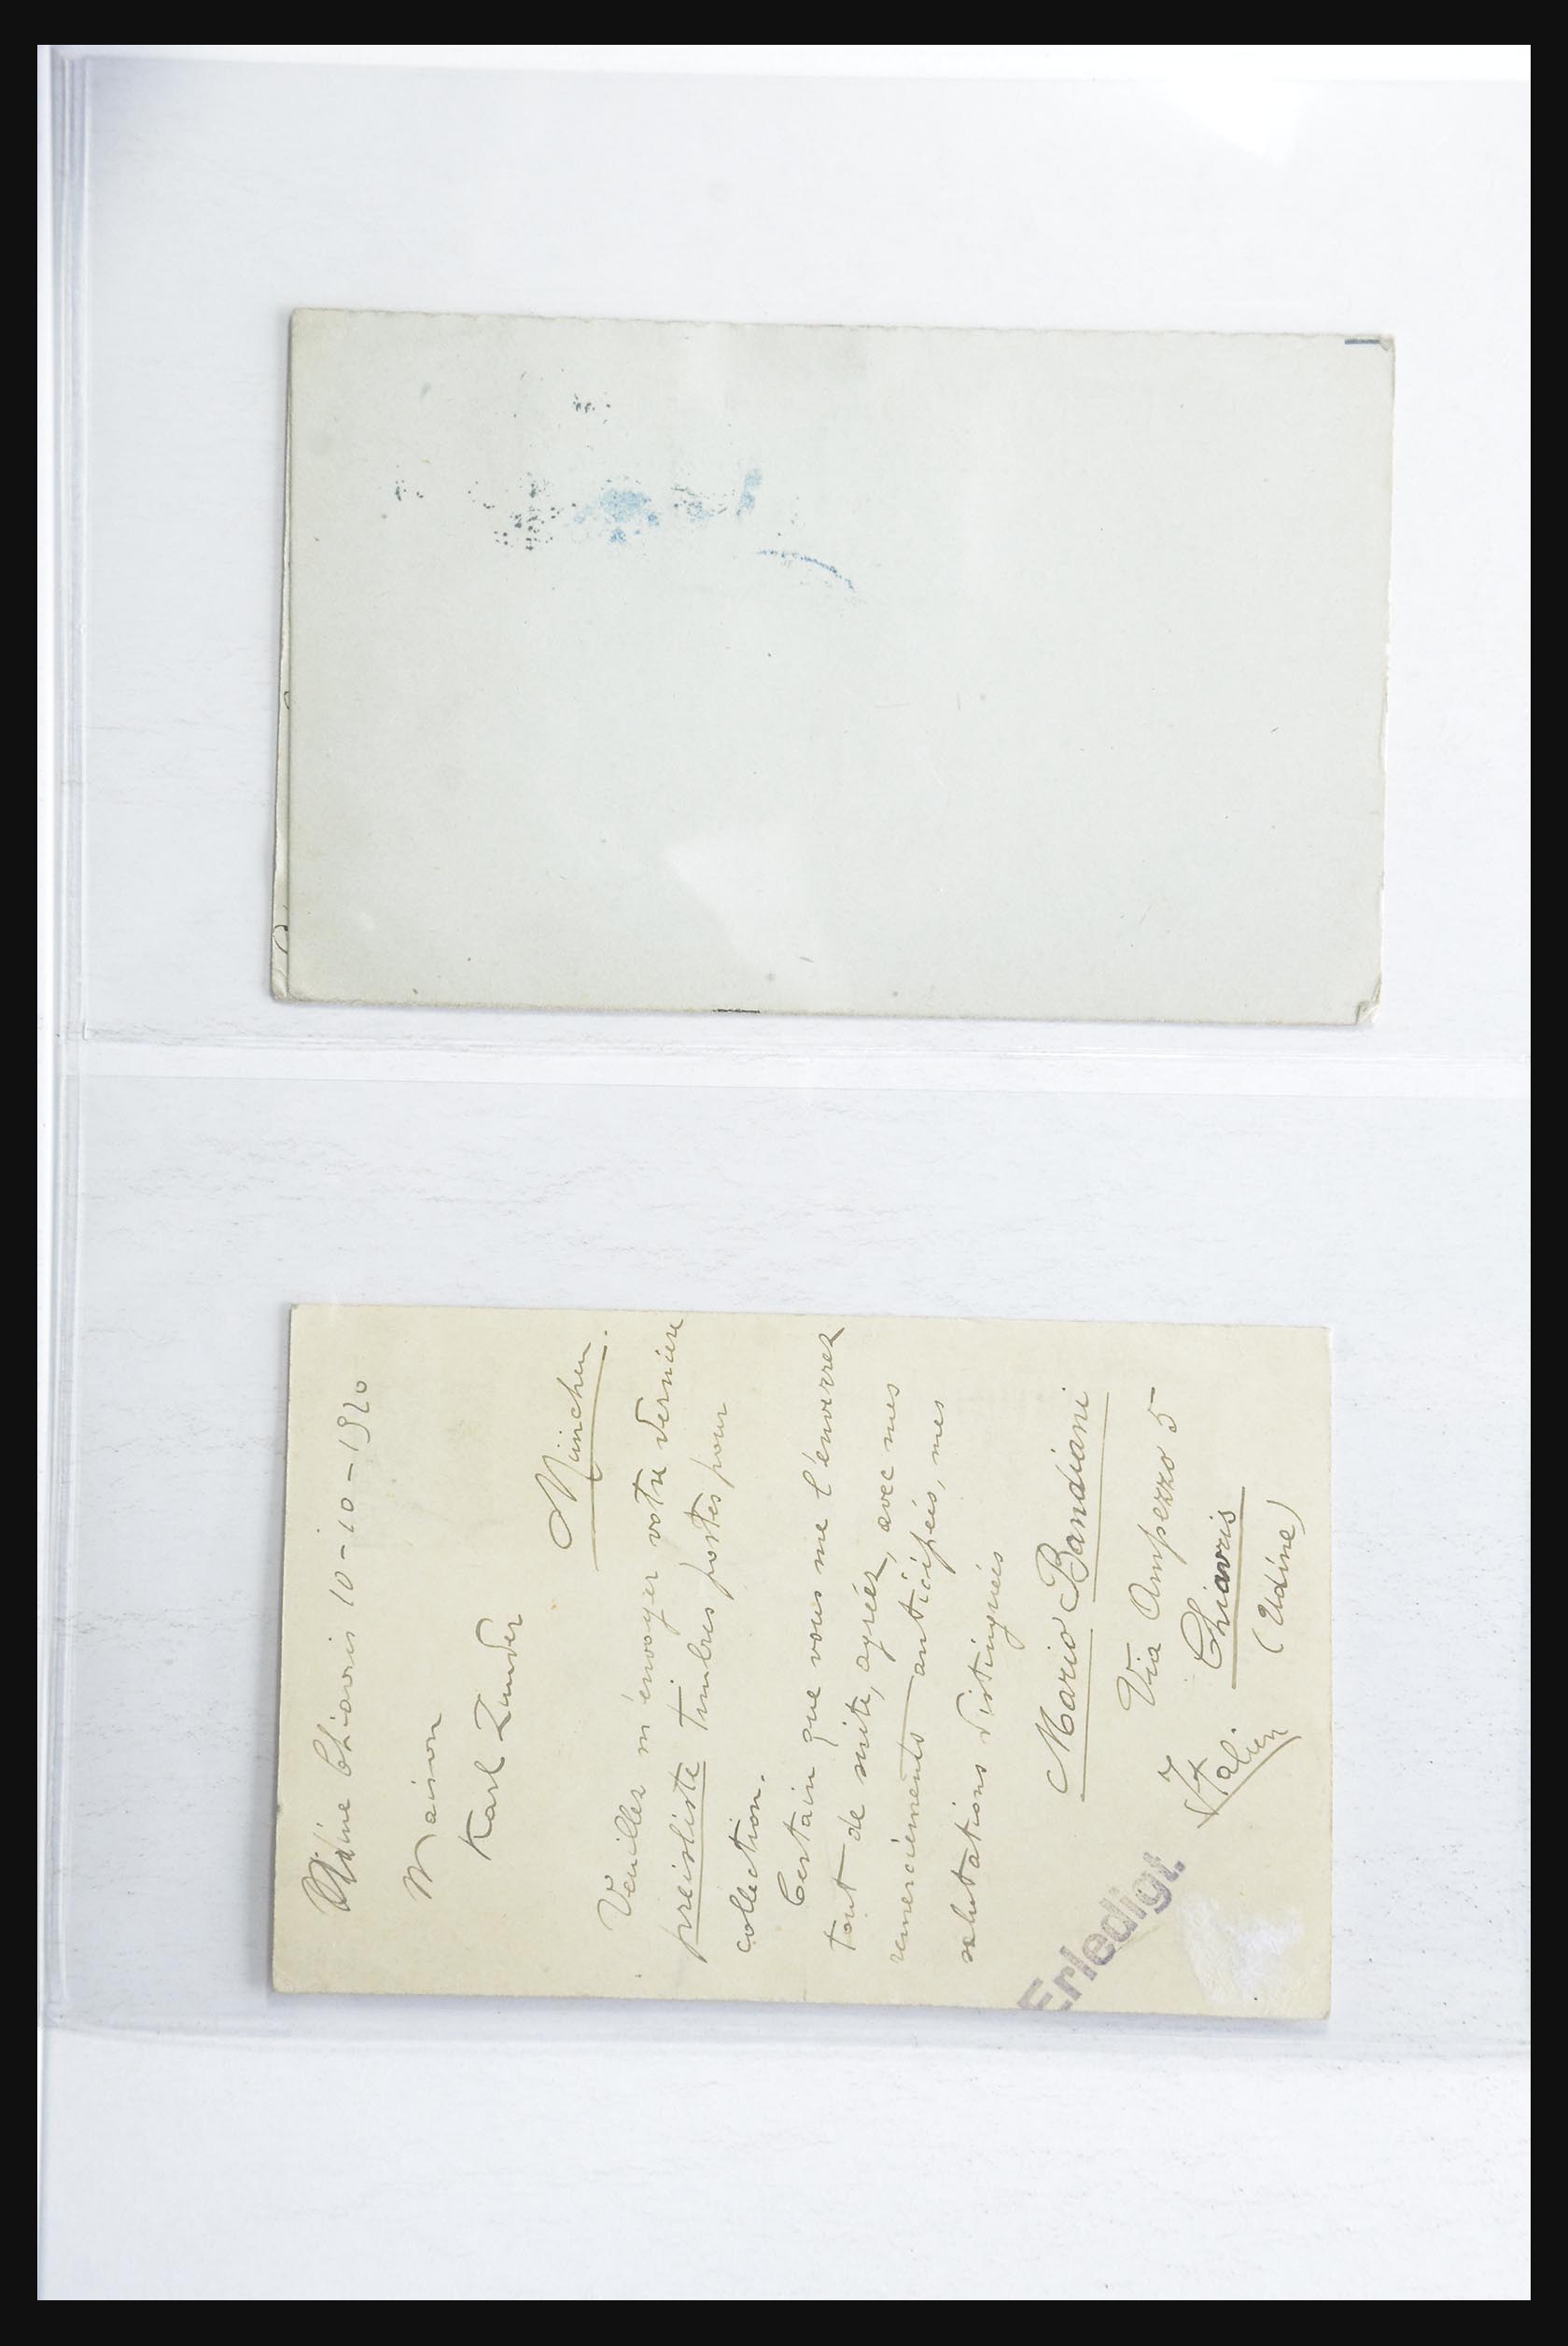 Udine Chiavris 10-10-1920
Maison
Karl Zunder
München.
Veuillez m'envoyer votre dernière
preisliste timbres postes pour
collection.
Certain que vous me l'enverrez
tout de suite, agréez, avec mes
remerciements anticipés, mes
salutations distinguées
Mario Bandiani
Via Ampezzo 5
Chiavris
(Udine)
Italien
Erledigt.